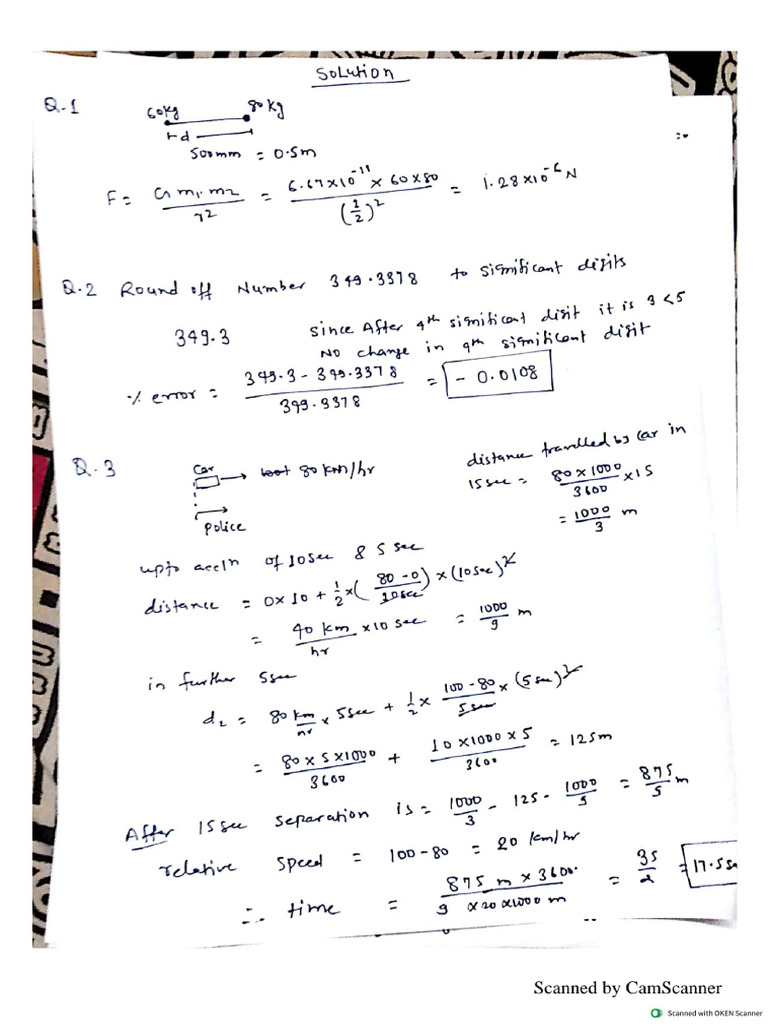 Solution
Q.1 60kg 80kg
d
500mm = 0.5m
F = G m₁ m₂ / r² = 6.67×10⁻¹¹ × 60×80 / (1/2)² = 1.28×10⁻⁶ N
Q.2 Round off Number 349.3378 to significant digits
349.3 since After 4th significant digit it is 3<5
No change in 4th significant digit
% error = 349.3 - 349.3378 / 349.3378 = - 0.0108
Q.3 Car → 80 km/hr
Police
distance travelled by car in
15sec = 80×1000 / 3600 ×15
= 1000/3 m
upto accln of 10sec & 5 sec
distance = 0×10 + 1/2 ×(80-0 / 10sec) × (10sec)²
= 40 km/hr ×10 sec = 1000/9 m
in further 5sec
d₂ = 80 km/hr × 5sec + 1/2 × 100-80 / 5sec × (5sec)²
= 80×5×1000 / 3600 + 10×1000×5 / 3600 = 125m
After 15sec separation is = 1000/3 - 125 - 1000/9 = 875/9 m
relative speed = 100-80 = 20 km/hr
∴ time = 875 m × 3600 / 9 ×20×1000 m = 35/2 = 17.5s
Scanned by CamScanner
Scanned with OKEN Scanner